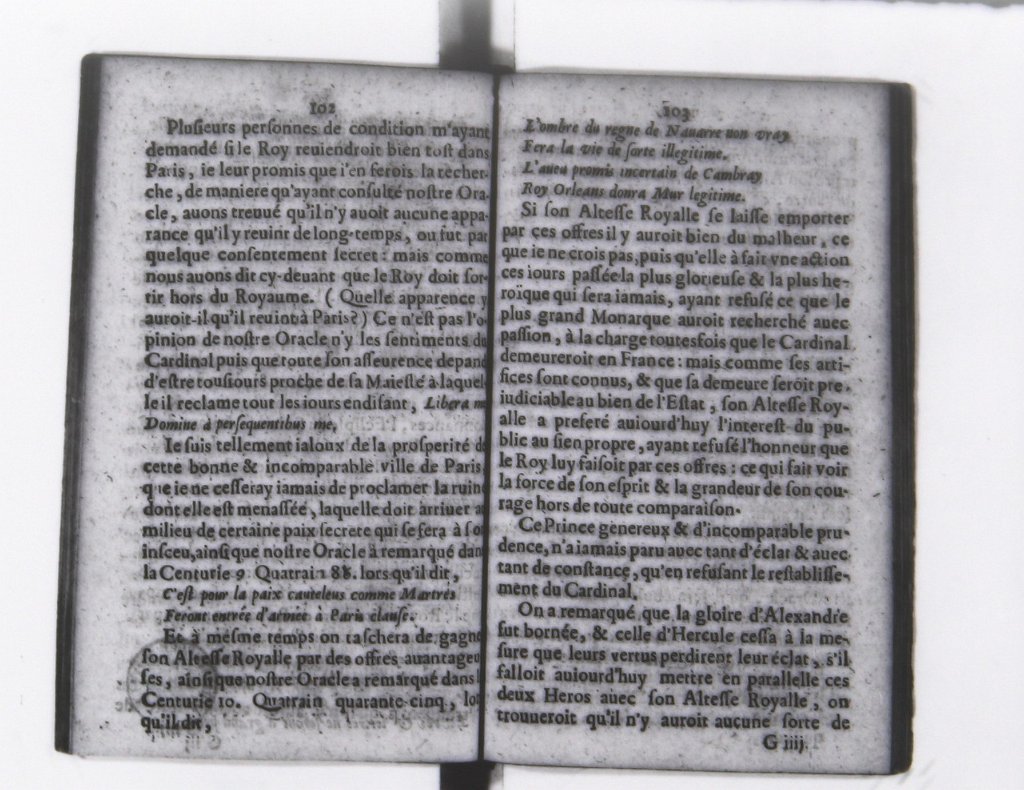 102
Plusieurs personnes de condition m'ayant
demandé si le Roy reuiendroit bien tost dans
Paris, ie leur promis que i'en ferois la recher-
che, de maniere qu'ayant consulté nostre Ora-
cle, auons treuué qu'il n'y auoit aucune appa-
rance qu'il y reuint de long-temps, ou fut par
quelque consentement secret: mais comme
nous auons dit cy-deuant que le Roy doit sor-
tir hors du Royaume. ( Quelle apparence y
auroit-il qu'il reuint à Paris?) Ce n'est pas l'o-
pinion de nostre Oracle n'y les sentiments du
Cardinal puis que toute son asseurence depand
d'estre tousiours proche de sa Maiesté à laquel
le il reclame tout les iours en disant, Libera m
Domine à persequentibus me,
Ie suis tellement ialoux de la prosperité d
cette bonne & incomparable ville de Paris
que ie ne cesseray iamais de proclamer la ruin
dont elle est menassée, laquelle doit arriuer a
milieu de certaine paix secrete qui se fera à so
insceu, ainsi que nostre Oracle à remarqué dan
la Centurie 9. Quatrain 88. lors qu'il dit,
C'est pour la paix cauteleus comme Martres
Feront entrée d'armée à Paris clause.
Et à mesme temps on taschera de gagne
son Altesse Royalle par des offres auantageu
ses, ainsi que nostre Oracle a remarqué dans l
Centurie 10. Quatrain quarante-cinq, lo
qu'il dit,
103
L'ombre du regne de Nauarre non vray
Fera la vie de sorte illegitime.
L'auea promis incertain de Cambray
Roy Orleans donra Mur legitime.
Si son Altesse Royalle se laisse emporter
par ces offres il y auroit bien du malheur, ce
que ie ne crois pas, puis qu'elle à fait vne action
ces iours passée la plus glorieuse & la plus he-
roïque qui sera iamais, ayant refusé ce que le
plus grand Monarque auroit recherché auec
passion, à la charge toutesfois que le Cardinal
demeureroit en France: mais comme ses arti-
fices sont connus, & que sa demeure seroit pre-
iudiciable au bien de l'Estat, son Altesse Roy-
alle a preferé auiourd'huy l'interest du pu-
blic au sien propre, ayant refusé l'honneur que
le Roy luy faisoit par ces offres: ce qui fait voir
la force de son esprit & la grandeur de son cou-
rage hors de toute comparaison.
Ce Prince genereux & d'incomparable pru-
dence, n'a iamais paru auec tant d'éclat & auec
tant de constance, qu'en refusant le restablisse-
ment du Cardinal.
On a remarqué que la gloire d'Alexandre
fut bornée, & celle d'Hercule cessa à la me-
sure que leurs vertus perdirent leur éclat, s'il
falloit auiourd'huy mettre en parallelle ces
deux Heros auec son Altesse Royalle, on
trouueroit qu'il n'y auroit aucune sorte de
G iiij.